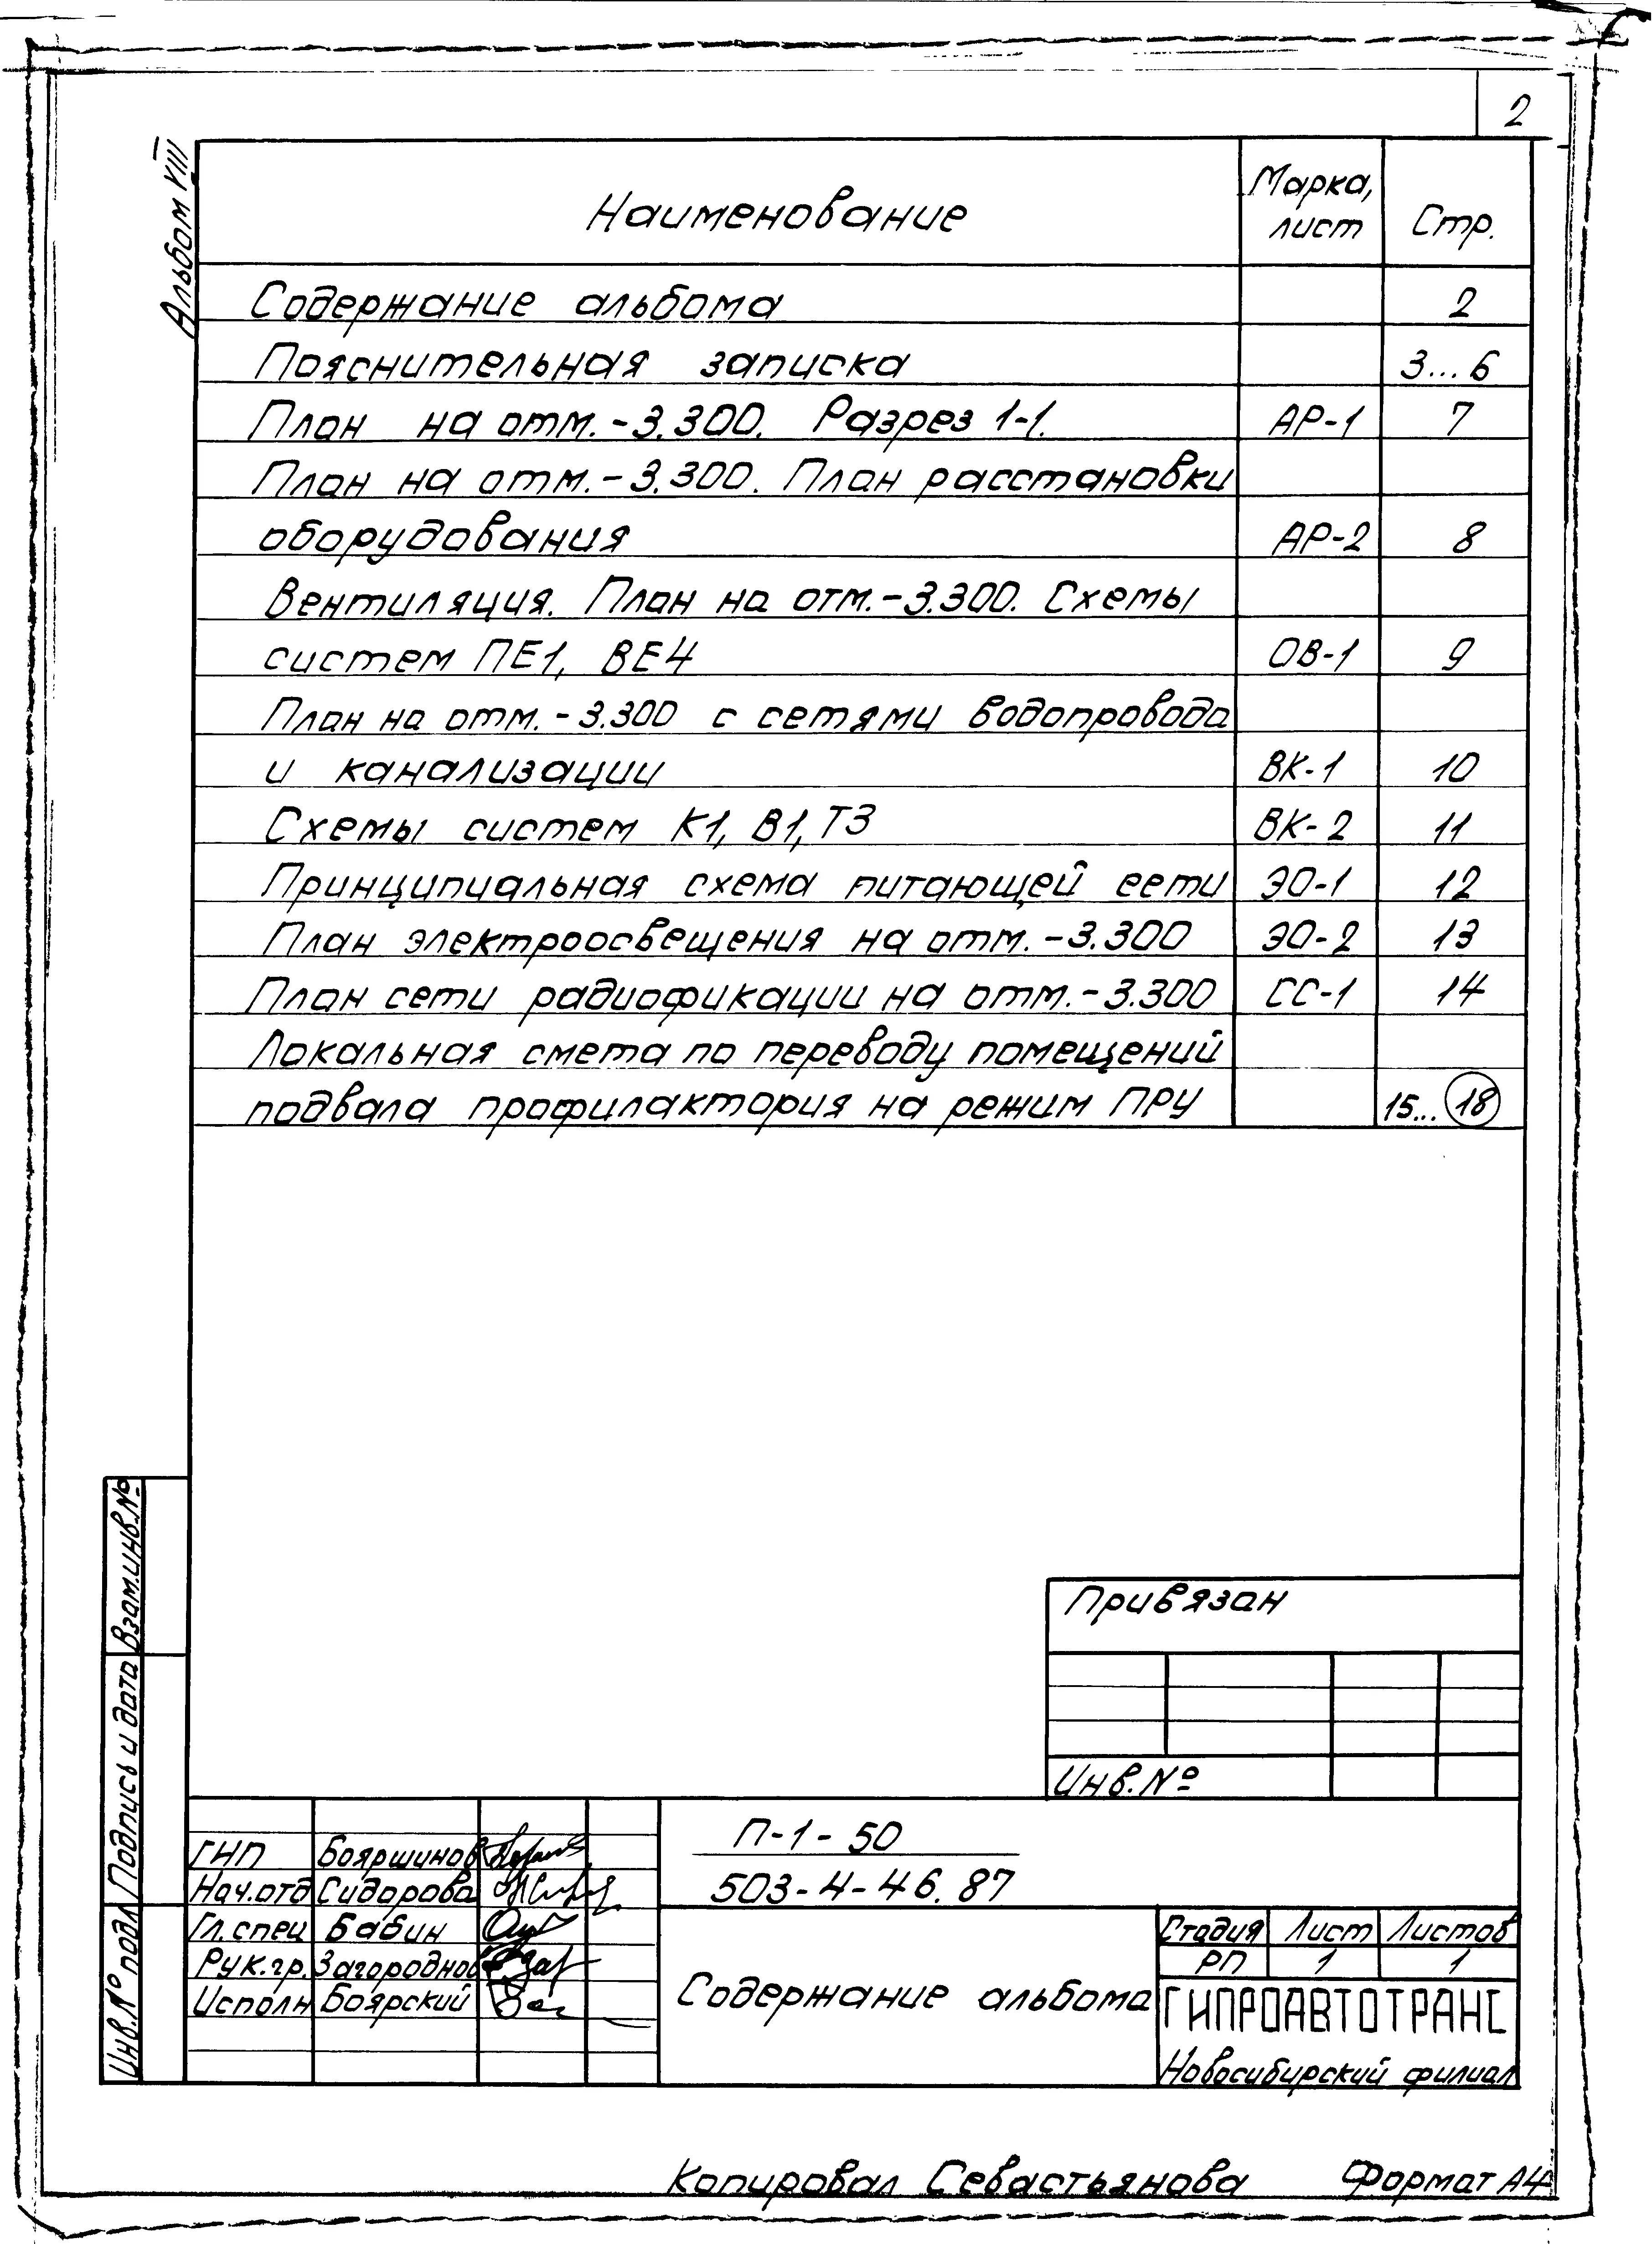 2
Альбом VIII
Наименование
Марка, лист
Стр.
Содержание альбома 2
Пояснительная записка 3...6
План на отм.-3.300. Разрез 1-1. АР-1 7
План на отм.-3.300. План расстановки
оборудования АР-2 8
Вентиляция. План на отм.-3.300. Схемы
систем ПЕ1, ВЕ4 ОВ-1 9
План на отм.-3.300 с сетями водопровода
и канализации ВК-1 10
Схемы систем К1, В1, Т3 ВК-2 11
Принципиальная схема питающей сети ЭО-1 12
План электроосвещения на отм.-3.300 ЭО-2 13
План сети радиофикации на отм.-3.300 СС-1 14
Локальная смета по переводу помещений
подвала профилактория на режим ПРУ 15...18
Взам.инв.№
Подпись и дата
Инв.№ подл
Привязан
Инв.№
ГИП Бояршинов
Нач.отд Сидорова
Гл.спец Бабин
Рук.гр. Загороднов
Исполн Боярский
П-1-50
503-4-46.87
Содержание альбома
Стадия Лист Листов
РП 1 1
ГИПРОАВТОТРАНС
Новосибирский филиал
Копировал Севастьянова Формат А4